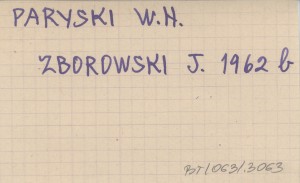 PARYSKI W.H.
ZBOROWSKI J. 1962 b
BT/063/.3063